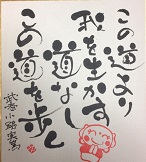 この道より
我を生かす
道なし
この道を歩く
武者小路実篤